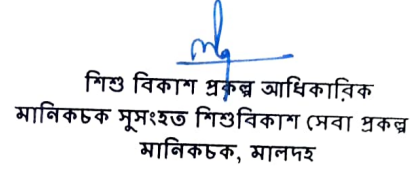 শিশু বিকাশ প্রকল্প আধিকারিক
মানিকচক সুসংহত শিশুবিকাশ সেবা প্রকল্প
মানিকচক, মালদহ